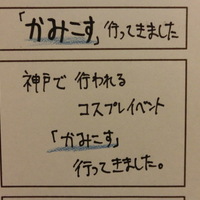 「かみこす」行ってきました
神戸で 行われる
コスプレイベント
「かみこす」
行ってきました。